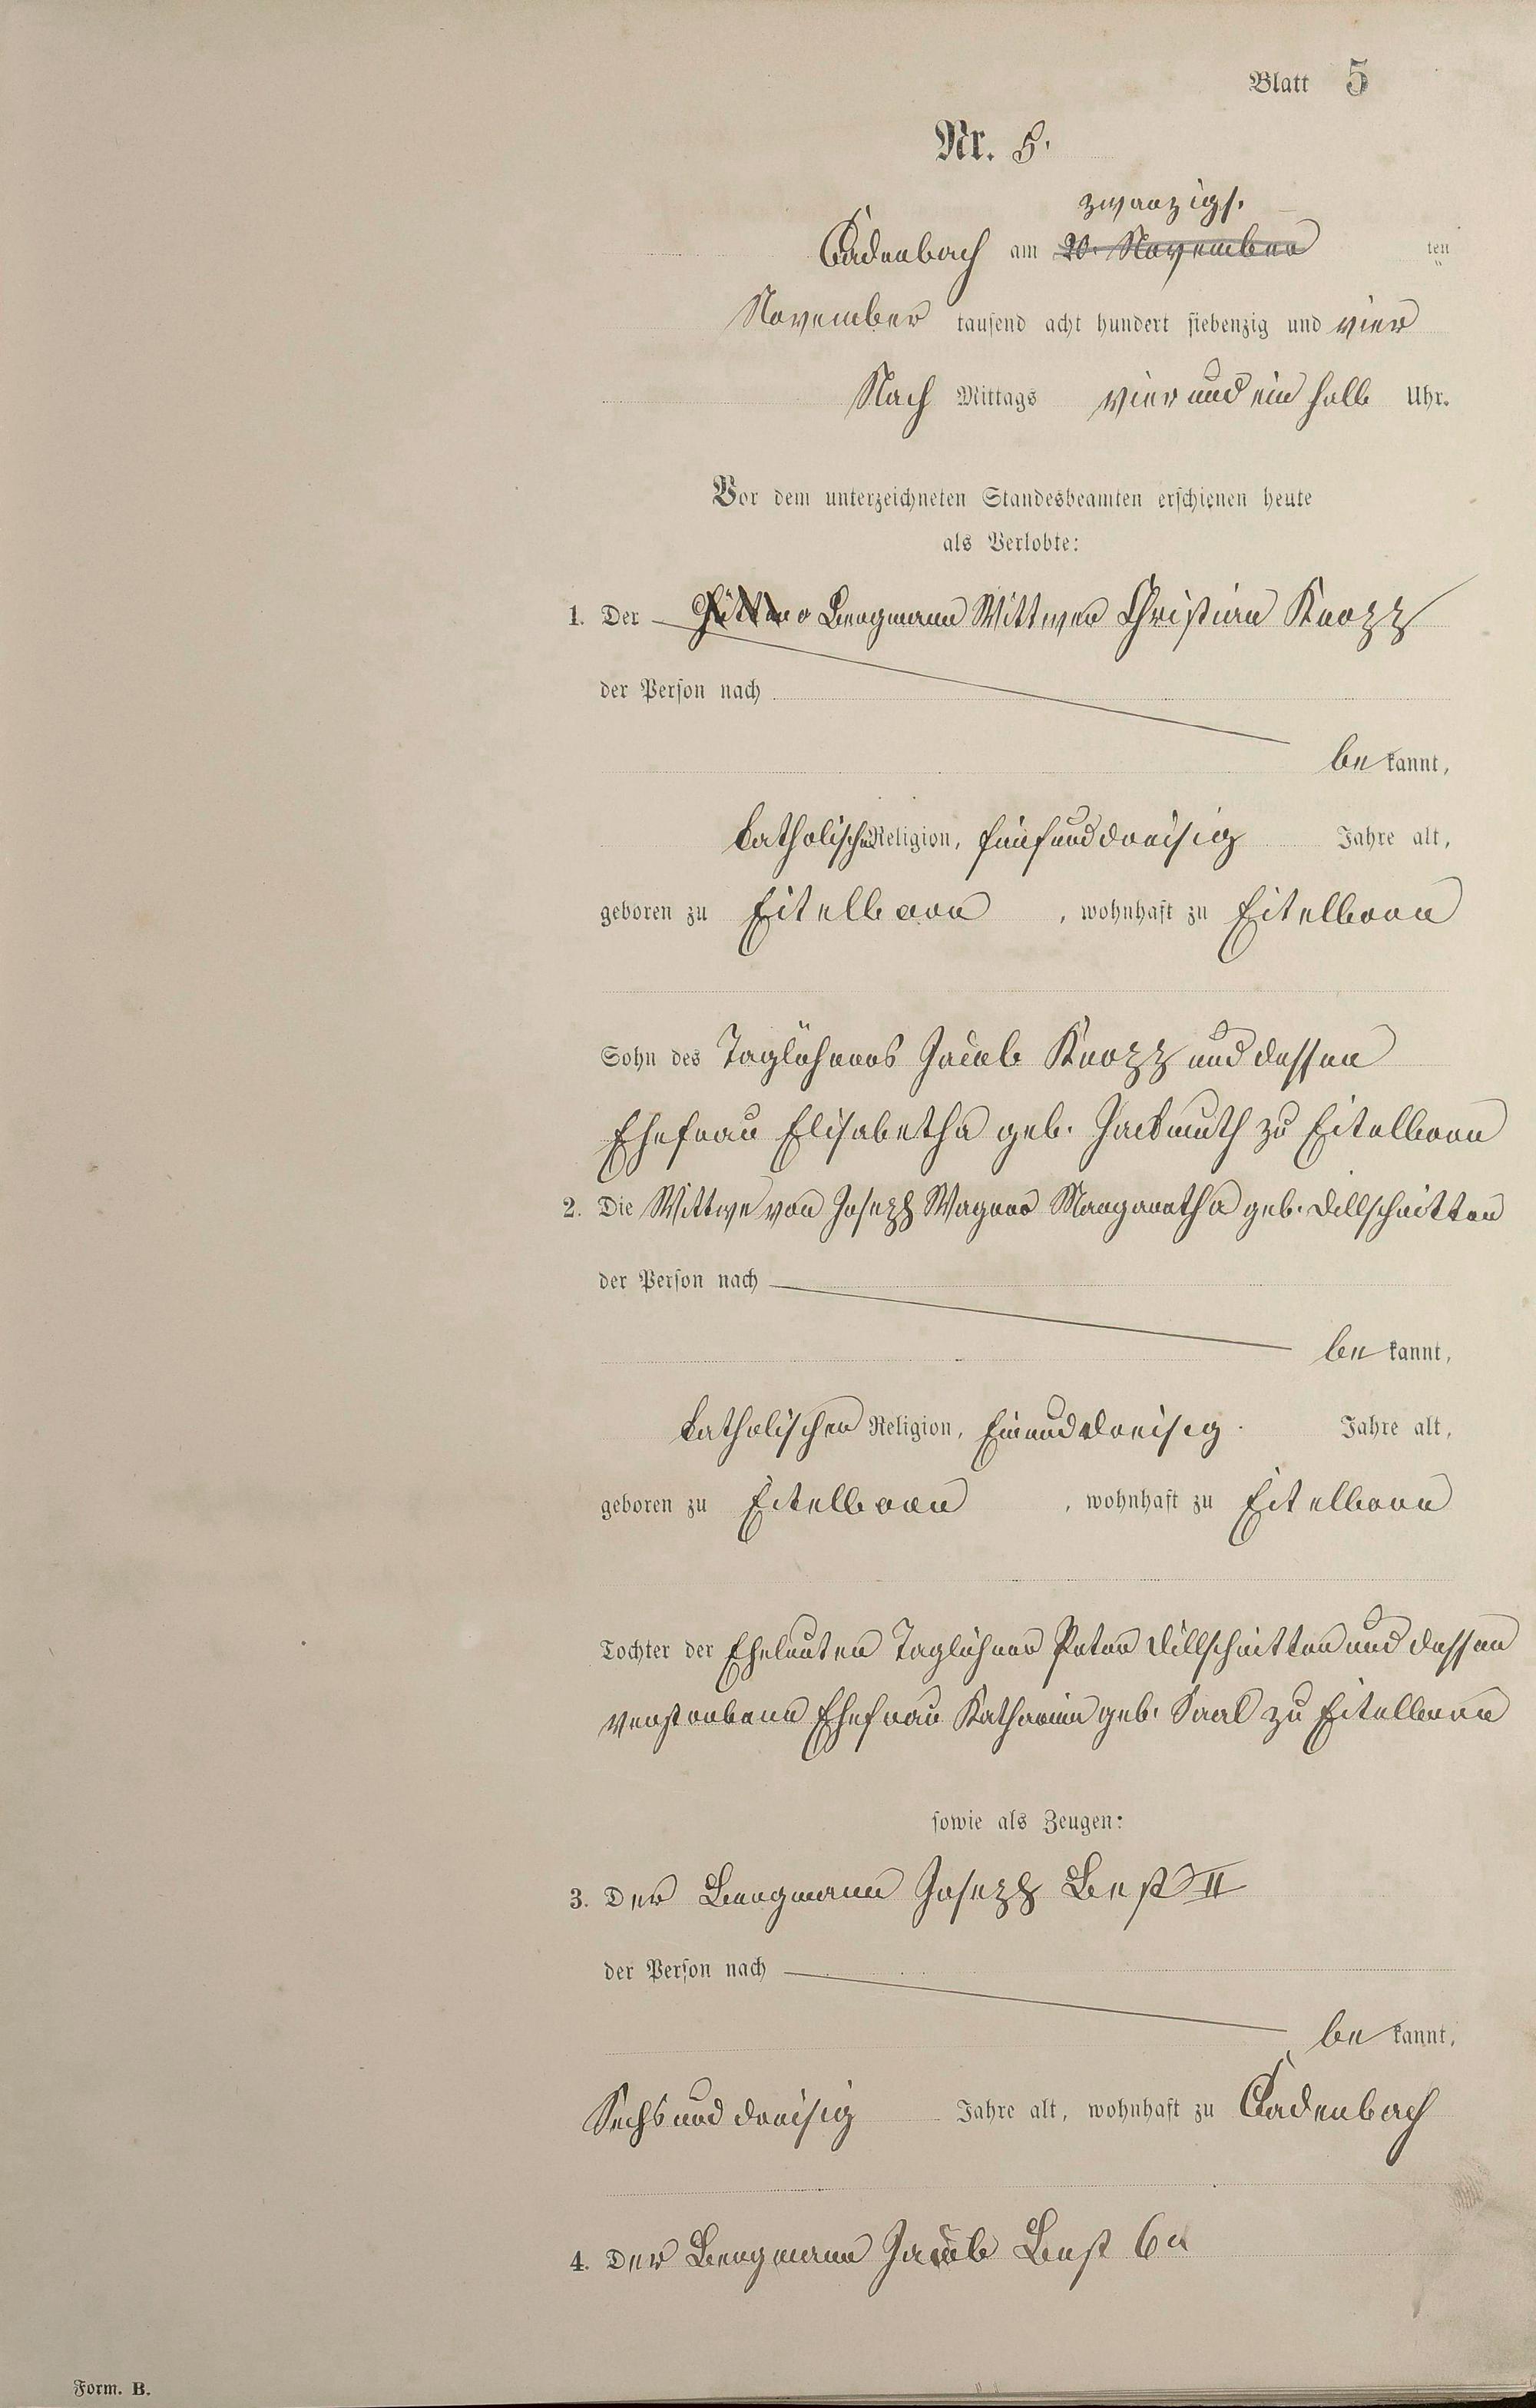 Blatt 5
Nr. 5.
zwanzigs.
Cadenbach am 20. November ten
November tausend acht hundert siebenzig und vier
Nach Mittags vier und ein halb Uhr.
Vor dem unterzeichneten Standesbeamten erschienen heute
als Verlobte:
1. Der Bergmann Wittwer Christian Knopp
der Person nach
be kannt,
katholischer Religion, fünfunddreisig Jahre alt,
geboren zu Eitelborn, wohnhaft zu Eitelborn
Sohn des Taglöhners Jacob Knopp und dessen
Ehefrau Elisabetha geb. Jackmuth zu Eitelborn
2. Die Wittwe von Joseph Wagner Margaretha geb. Dillschnitter
der Person nach
be kannt,
katholischen Religion, Einunddreisig Jahre alt,
geboren zu Eitelborn, wohnhaft zu Eitelborn
Tochter der Eheleuten Taglöhner Peter Dillschnitter und dessen
verstorbene Ehefrau Katharina geb. Saal zu Eitelborn
sowie als Zeugen:
3. Der Bergmann Joseph Best II
der Person nach
be kannt,
Sechsunddreisig Jahre alt, wohnhaft zu Cadenbach
4. Der Bergmann Jacob Best 6r
Form. B.